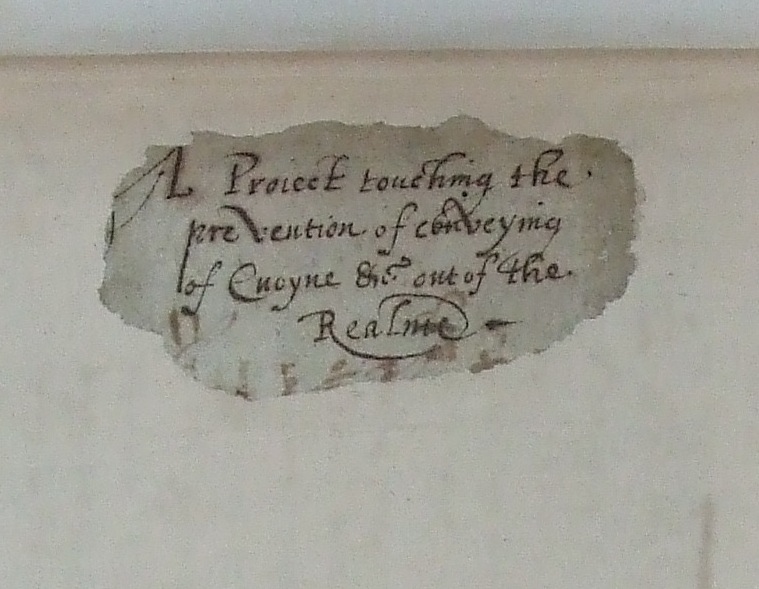 A Proiect touching the
prevention of conveying
of Cuoyne &c out of the
Realme